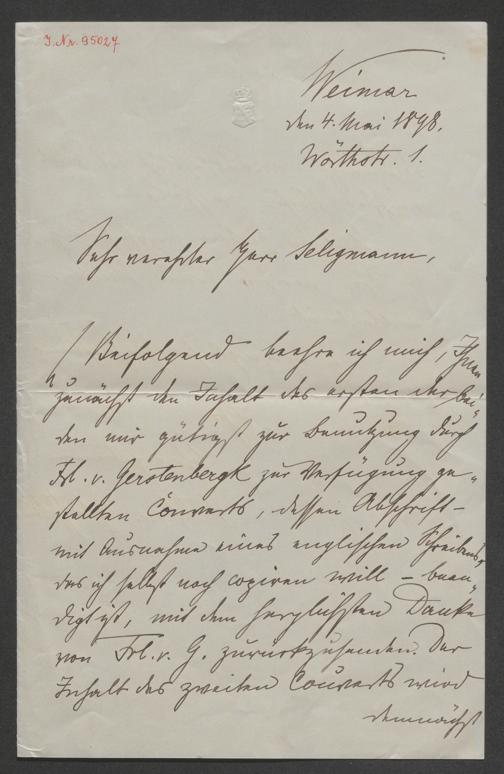 J. Nr. 95027
Weimar
den 4. Mai 1898.
Wörthstr. 1.
Sehr verehrter Herr Seligmann,
Beifolgend beehre ich mich, Ihnen
zunächst den Inhalt des ersten der bei-
den mir gütigst zur Benutzung durch
Frl. v. Gerstenbergk zur Verfügung ge-
stellten Couverts, dessen Abschrift –
mit Ausnahme eines englischen Schreibens,
das ich selbst noch copiren will – been-
digt ist, mit dem herzlichsten Danke
von Frl. v. G. zurückzusenden. Der
Inhalt des zweiten Couverts wird
demnächst